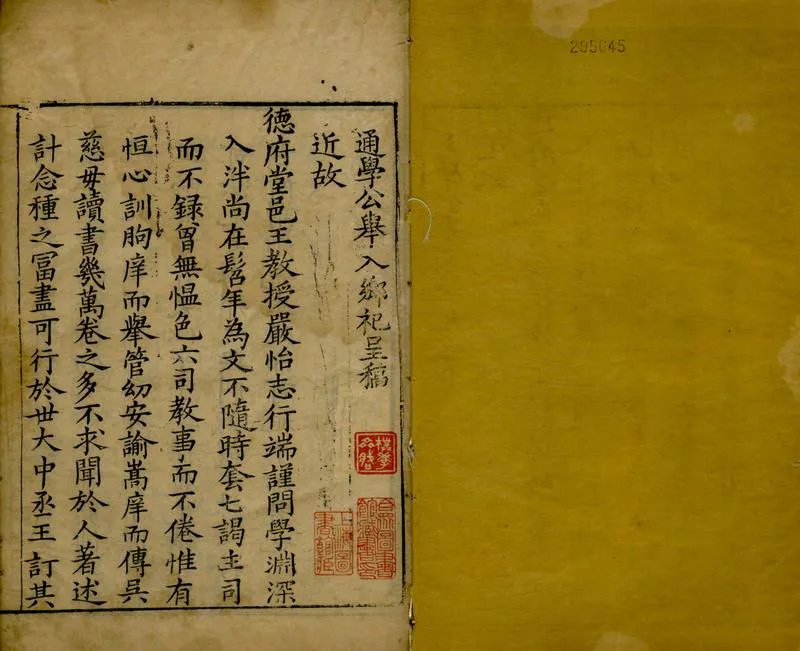 通學公舉入鄉祀呈稿
近故
德府堂邑王教授嚴怡志行端謹問學淵深
入泮尚在髫年為文不隨時套七謁主司
而不録曾無愠色六司教事而不倦惟有
恒心訓朐庠而舉管幼安諭嵩庠而傳吳
慈毋讀書幾萬卷之多不求聞於人著述
計念種之冨盡可行於世大中丞王 訂其
295645